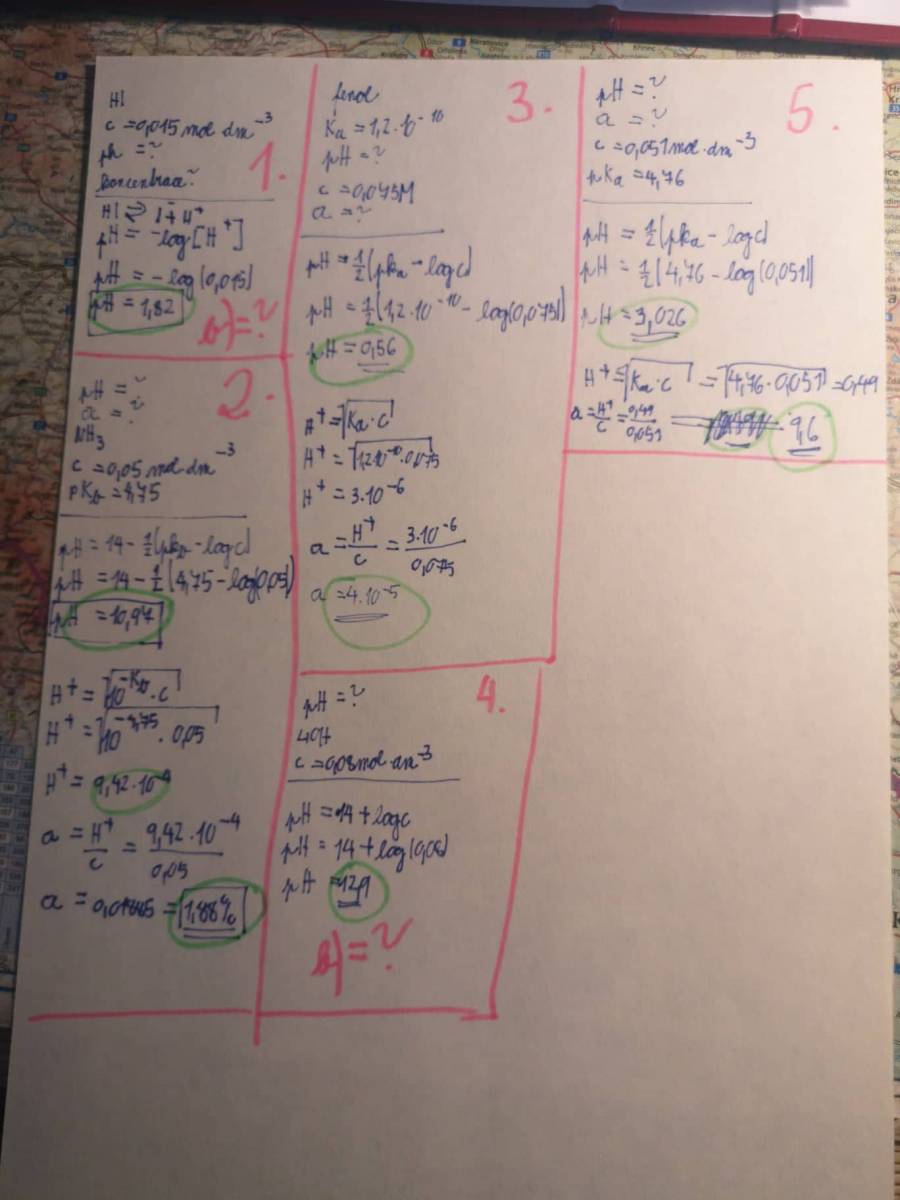 1.
HI
c = 0,015 mol dm⁻³
ph = ?
koncentrace?
HI ⇌ I⁻ + H⁺
pH = -log[H⁺]
pH = -log(0,015)
pH = 1,82
b) = ?
2.
pH = ?
a = ?
NH₃
c = 0,05 mol dm⁻³
pKb = 4,75
pH = 14 - ½(pkb - logc)
pH = 14 - ½(4,75 - log(0,05)
pH = 10,97
H⁺ = √10⁻ᴷᵇ · c
H⁺ = √10⁻⁴,⁷⁵ · 0,05
H⁺ = 9,42·10⁻⁴
a = H⁺/c = 9,42·10⁻⁴/0,05
a = 0,01885 = 1,88%
3.
fenol
Ka = 1,2·10⁻¹⁰
pH = ?
c = 0,075M
a = ?
pH = ½(pka - logc)
pH = ½(1,2·10⁻¹⁰ - log(0,075))
pH = 0,56
H⁺ = √Ka·c
H⁺ = √1,2·10⁻¹⁰·0,075
H⁺ = 3·10⁻⁶
a = H⁺/c = 3·10⁻⁶/0,075
a = 4·10⁻⁵
4.
pH = ?
c = 0,08 mol dm⁻³
pH = 14 + logc
pH = 14 + log(0,08)
pH = 12,9
b) = ?
5.
pH = ?
a = ?
c = 0,051 mol·dm⁻³
pKa = 4,76
pH = ½(pka - logc)
pH = ½(4,76 - log(0,051))
pH = 3,026
H⁺ = √Ka·c = √4,76·0,051 = 0,49
a = H⁺/c = 0,49/0,051 = 9,6